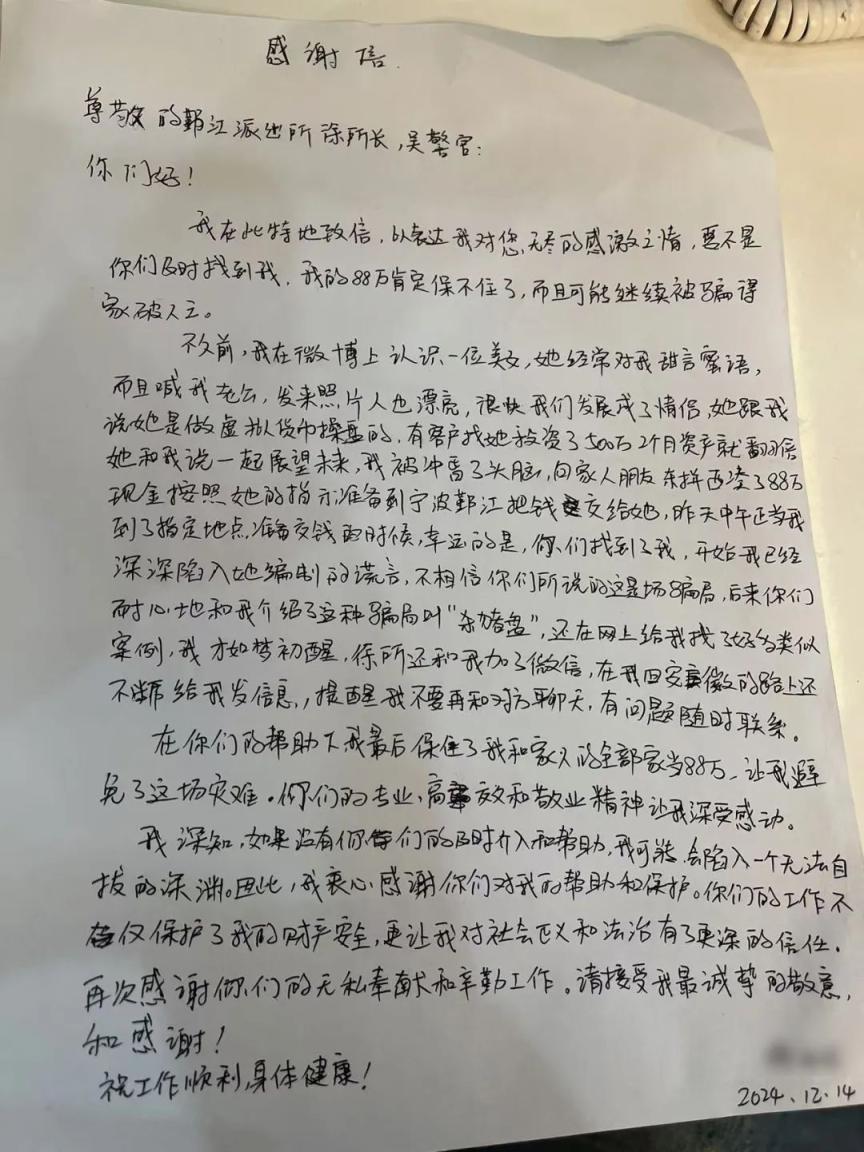 感谢信.
尊敬的鄞江派出所徐所长,吴警官:
你们好!
我在此特地致信,以表达我对您无尽的感激之情,要不是
你们及时找到我,我的88万肯定保不住了,而且可能继续被骗得
家破人亡。
不久前,我在微博上认识一位美女,她经常对我甜言蜜语,
而且喊我老公,发来照片人也漂亮,很快我们发展成了情侣,她跟我
说她是做虚拟货币操盘的,有客户找她投资了500万2个月资产就翻倍
她和我说一起展望未来,我被冲昏了头脑,向家人朋友东拼西凑了88万
现金按照她的指示准备到宁波鄞江把钱交给她,昨天中午正当我
到了指定地点准备交钱的时候,幸运的是,你们找到了我,开始我已经
深深陷入她编制的谎言,不相信你们所说的这是场骗局,后来你们
耐心地和我介绍了这种骗局叫"杀猪盘",还在网上给我找了好多类似
案例,我才如梦初醒,徐所还和我加了微信,在我回安徽的路上还
不断给我发信息,提醒我不要再和对方聊天,有问题随时联系。
在你们的帮助下我最后保住了我和家人的全部家当88万,让我避
免了这场灾难。你们的专业,高效和敬业精神让我深受感动。
我深知,如果没有你们的及时介入和帮助,我可能会陷入一个无法自
拔的深渊。因此,我衷心感谢你们对我的帮助和保护。你们的工作不
仅保护了我的财产安全,更让我对社会正义和法治有了更深的信任.
再次感谢你们的无私奉献和辛勤工作。请接受我最诚挚的敬意,
和感谢!
祝工作顺利,身体健康!
2024.12.14